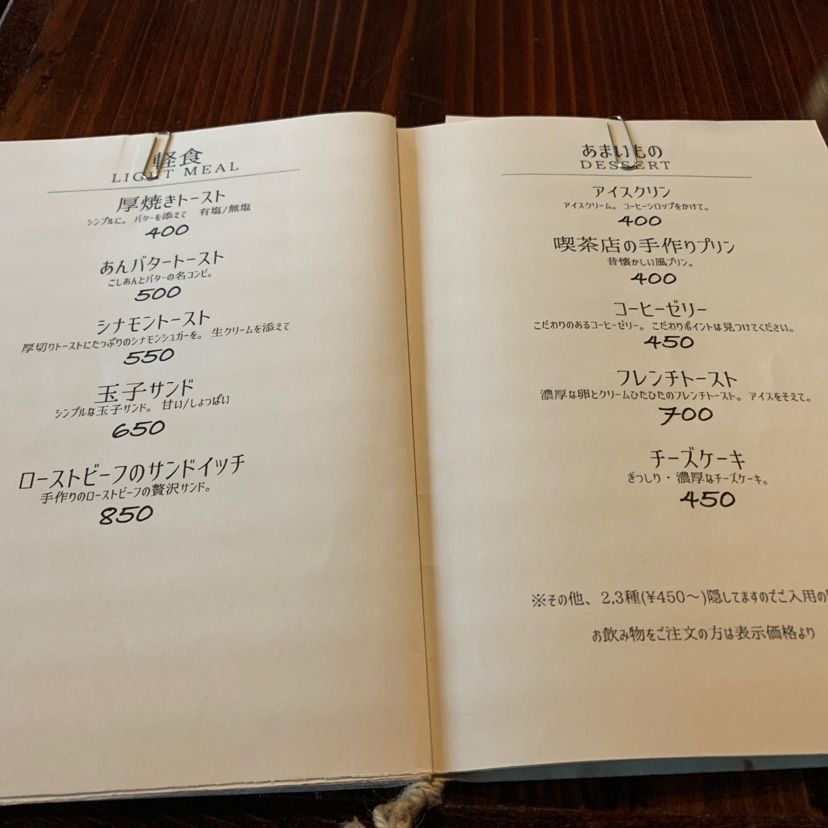 軽食
LIGHT MEAL
厚焼きトースト
シンプルに。 バターを添えて 有塩/無塩
400
あんバタートースト
こしあんとバターの名コンビ。
500
シナモントースト
厚切りトーストにたっぷりのシナモンシュガーを。 生クリームを添えて
550
玉子サンド
シンプルな玉子サンド。 甘い/しょっぱい
650
ローストビーフのサンドイッチ
手作りのローストビーフの贅沢サンド。
850
あまいもの
DESSERT
アイスクリン
アイスクリーム。 コーヒーシロップをかけて。
400
喫茶店の手作りプリン
昔懐かしい風プリン。
400
コーヒーゼリー
こだわりのあるコーヒーゼリー。 こだわりポイントは見つけてください。
450
フレンチトースト
濃厚な卵とクリームひたひたのフレンチトースト。 アイスをそえて。
700
チーズケーキ
ぎっしり・濃厚なチーズケーキ。
450
※その他、2,3種(¥450〜)隠してますのでご入用の
お飲み物をご注文の方は表示価格より